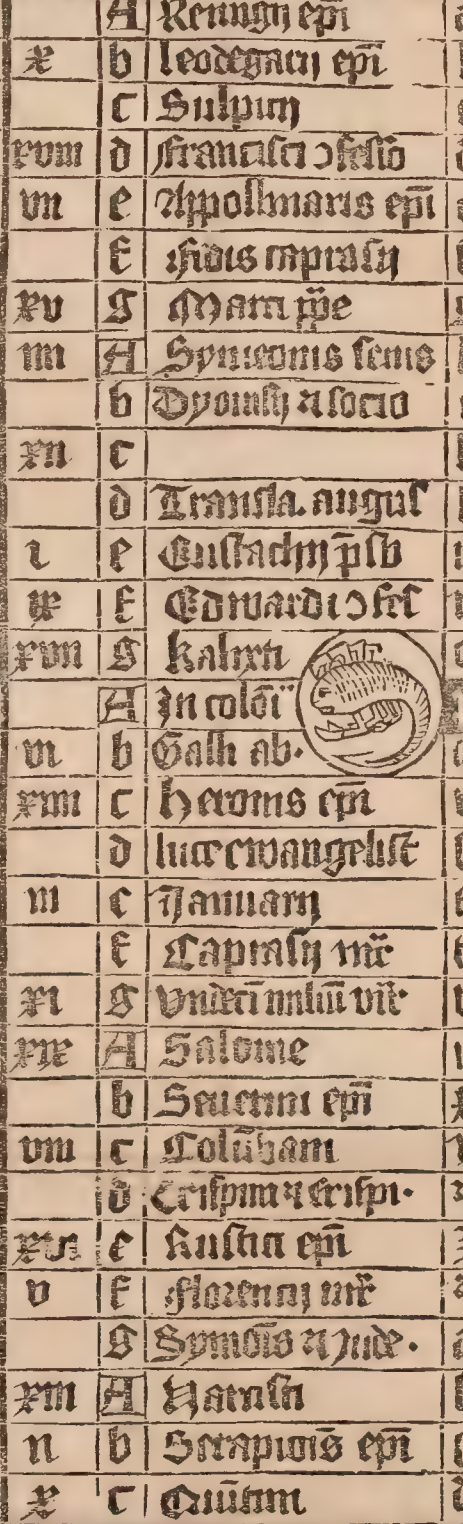 A Remigij epī
x b leodegarij epī
c Sulpitij
xviii d Francisci ɔfessō
vii e Appollinaris epī
f Fidis caprasij
xv g Marci ppe
iiii A Symeonis senis
b Dyonisij ⁊ socio
xii c
d Transla. augus
i e Eustachij p̄sb
ix f Edwardi ɔfes
xvii g kalixti
A In colōi
vi b Galli ab.
xiiii c heronis epī
d luce ewangeliste
iii e Januarij
f Caprasij mr̄
xi g Vndeci miliū vir
xix A Salome
b Seuerini epī
viii c Colūbani
d Crispini ⁊ crispi.
xvi e Rustici epī
v f Florencij mr̄
g Symōis ⁊ Jude.
xiii A Narcissi
ii b Serapiōis epī
x c Quītini